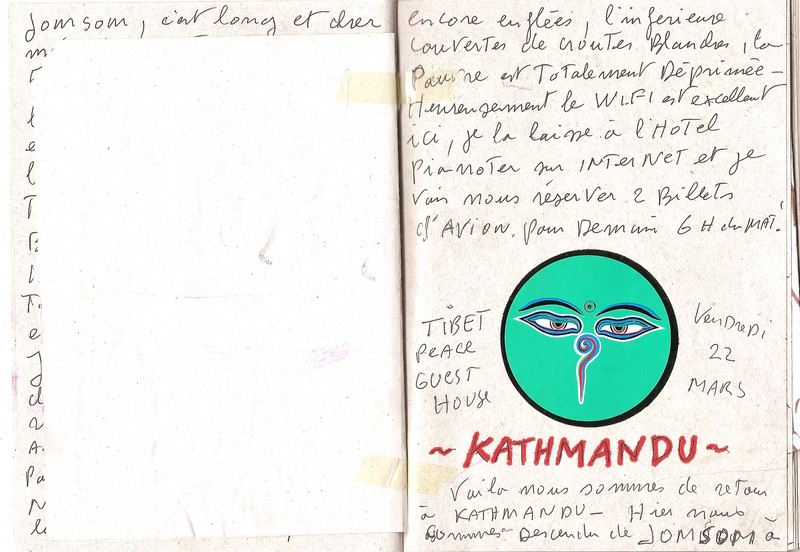 Jomsom, c'est long et cher
encore enflées, l'inférieure
couvertes de croutes Blanches, la
Pauvre est Totalement Déprimée -
Heureusement le WIFI est excellent
ici, je la laisse à l'HoTel
PianoTer sur INTERNET et je
vais nous réserver 2 Billets
d'AVION pour Demain 6 H du MAT!
TIBET
PEACE
GUEST
HOUSE
Vendredi
22
MARS
~ KATHMANDU ~
Voila nous sommes de retour
à KATHMANDU - Hier nous
sommes Descendu de JOMSOM à